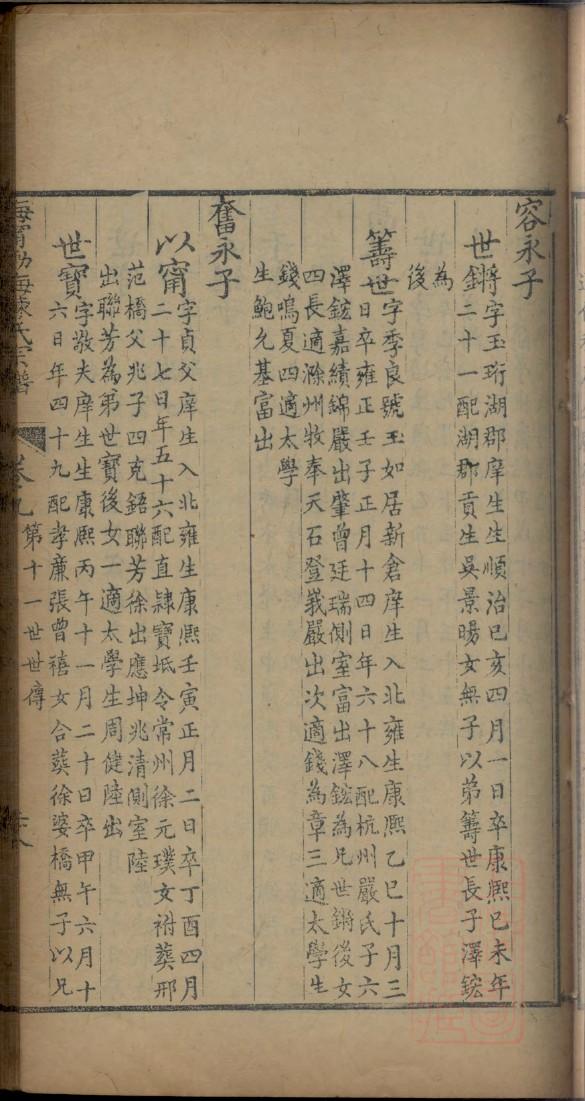 容永子
世鏘字玉珩湖郡庠生生順治己亥四月一日卒康熙己未年
二十一配湖郡貢生吳景暘女無子以弟籌世長子澤鋐
為
後
籌世字季良號玉如居新倉庠生入北雍生康熙乙巳十月三
日卒雍正壬子正月十四日年六十八配杭州嚴氏子六
澤鋐嘉績錦嚴出肇曾廷瑞側室富出澤鋐為兄世鏘後女
四長適滁州牧奉天石登義嚴出次適錢為章三適太學生
錢鳴夏四適太學
生鮑允基富出
奮永子
以甯字貞父庠生入北雍生康熙壬寅正月二日卒丁酉四月
二十七日年五十六配直隷寶坻令常州徐元璞女祔葬邢
范橋父兆子四克鋙聯芳徐出應坤兆清側室陸
出聯芳為弟世寶後女一適太學生周健陸出
世寶字敬夫庠生生康熙丙午十一月二十日卒甲午六月十
六日年四十九配孝廉張曾禧女合葬徐婆橋無子以兄
海甯渤海陳氏宗譜 卷九 第十一世世傳